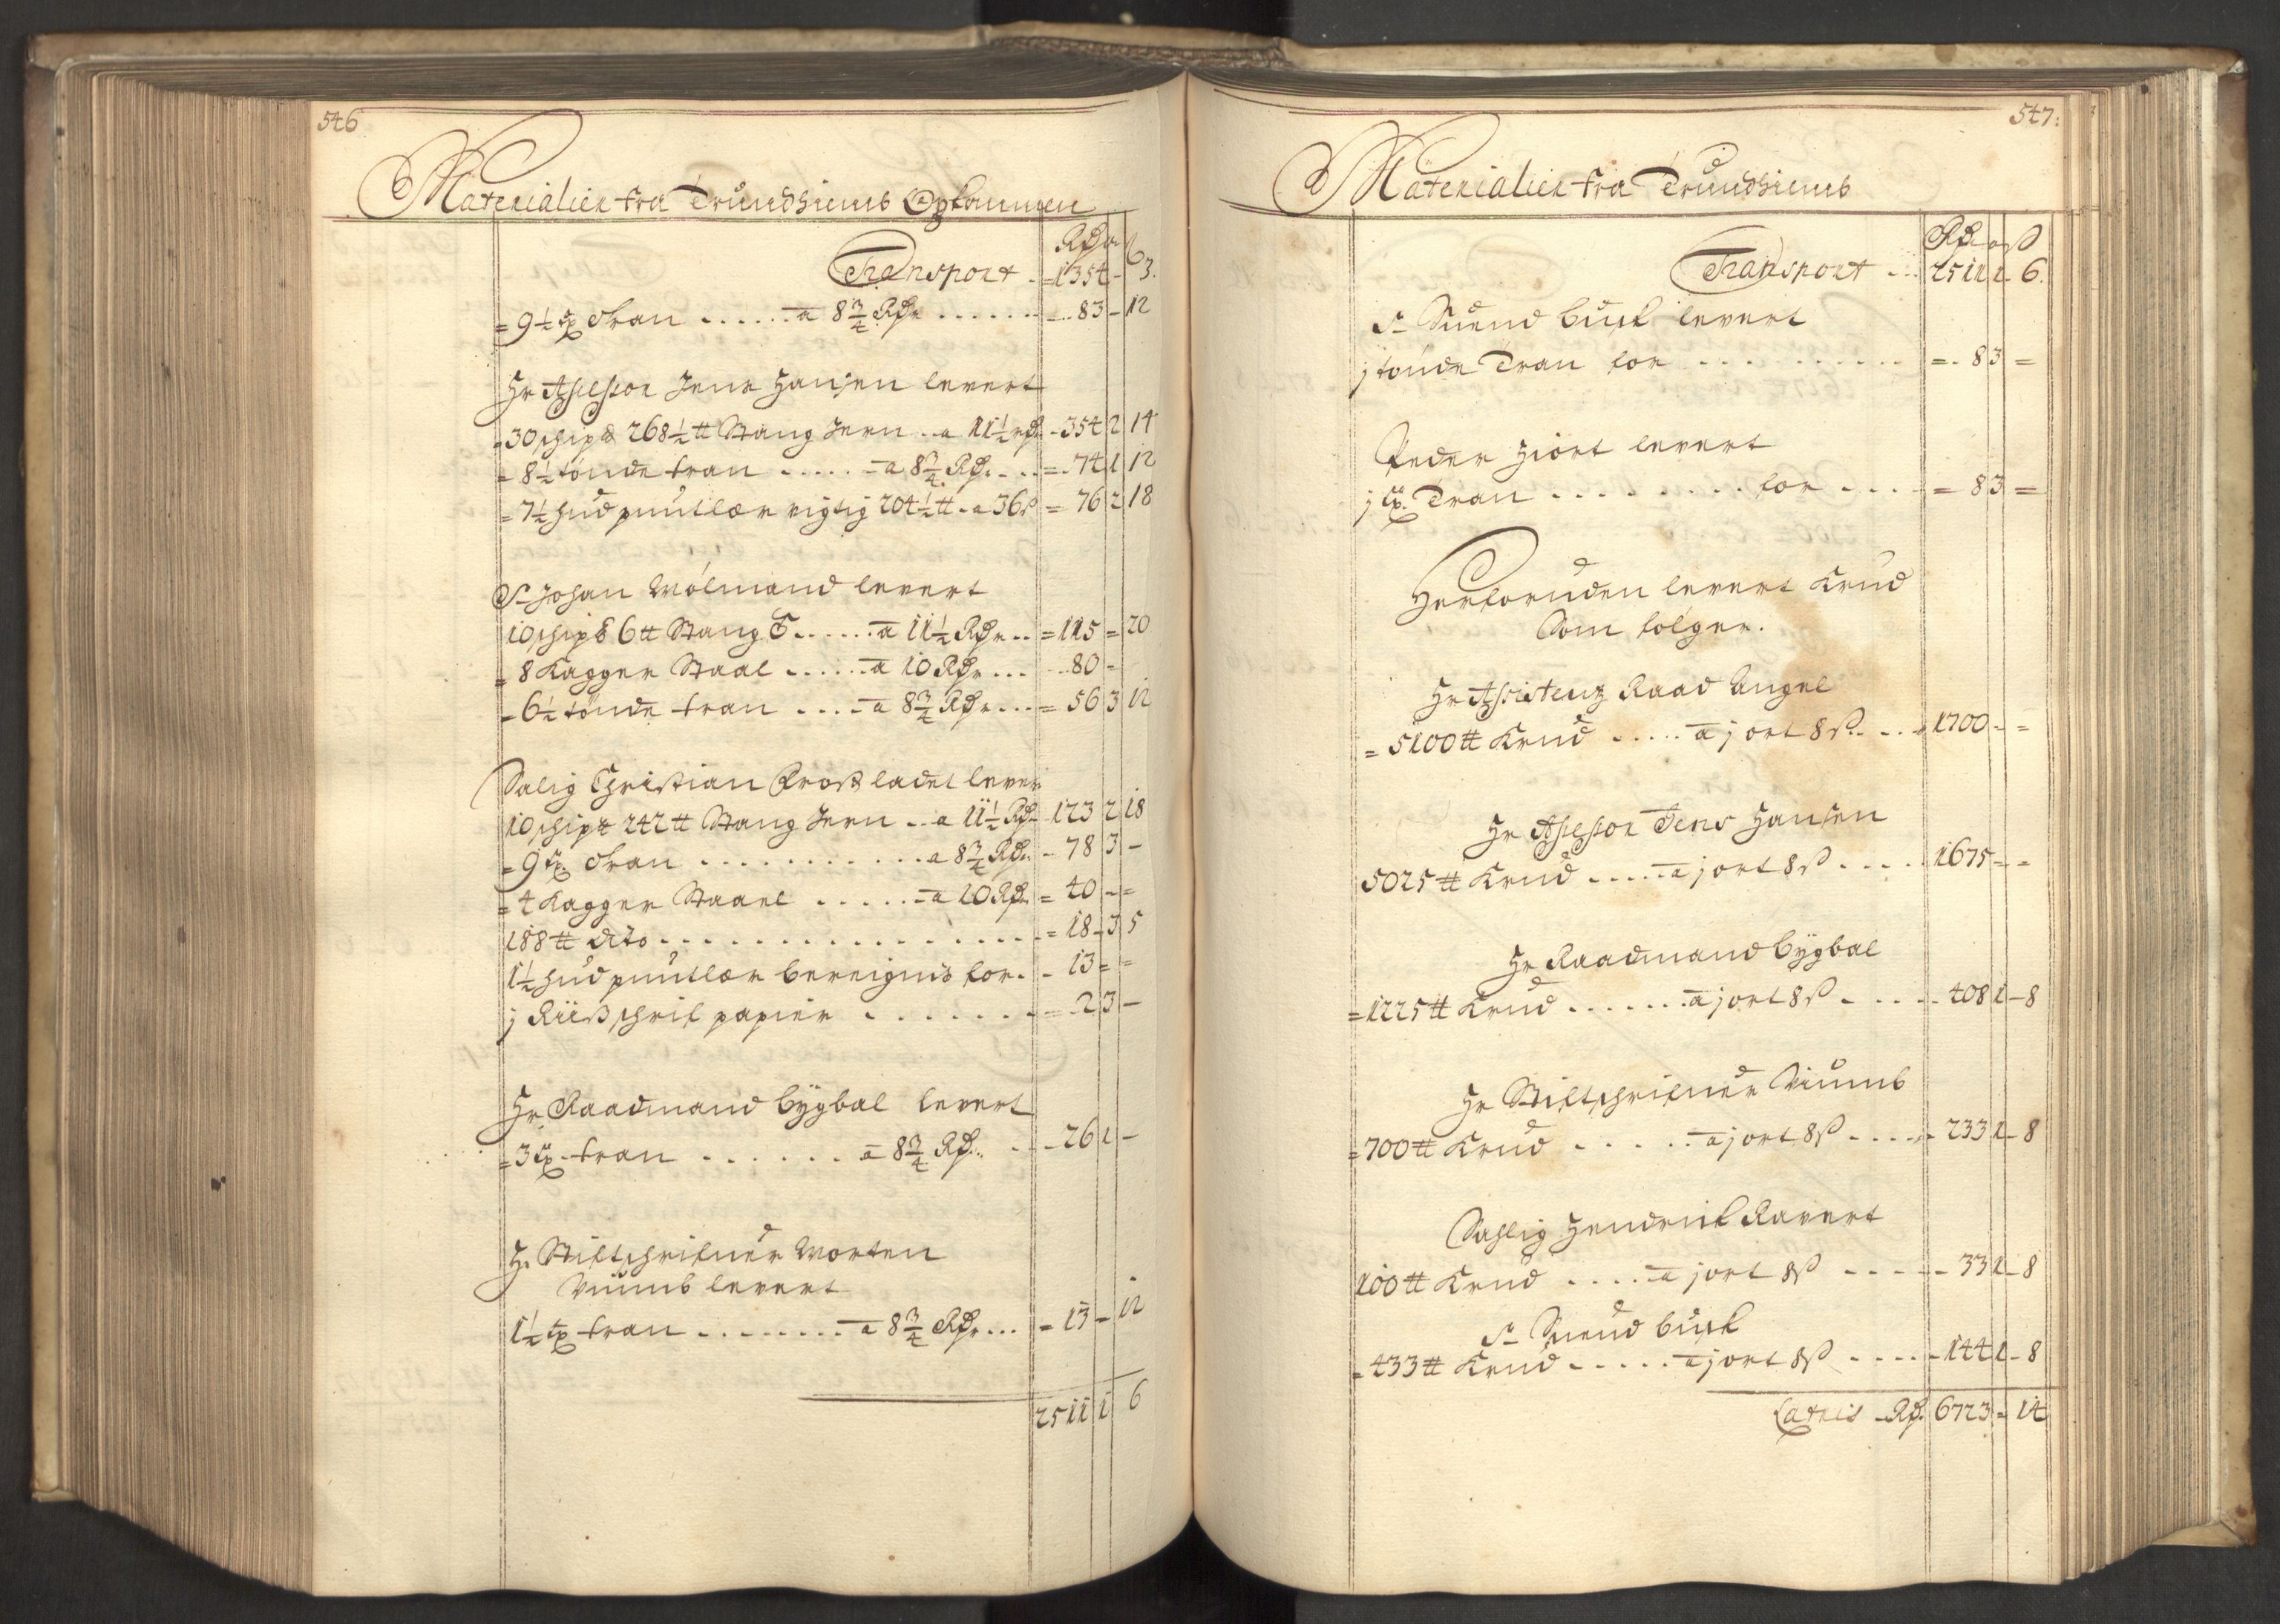 546
Materialier fra Trundhiems Opkommen
Rdr o ß
Transport . =1354 - 3.
=9½ tr Tran ...... a 8¾ Rdr ...... 83 - 12
Hr Assessor Jens Hansen levert
=30 schip℔ 268½ ℔ Stang Jern .. a 11½ rdr - 354 2 14
= 8½ tönde tran ...... a 8¾ Rdr .... = 74 1 12
= 7½ hud pundlær vigtig 204½ ℔ .. a 36 ß = 76 2 18
Sr Johan Wólmand levert
10 schip℔ 6 ℔ Stang J ...... a 11½ Rdr .. = 115 = 20
= 8 Kagger Staal ...... a 10 Rdr ... 80 -
= 6½ tönde tran .... a 8¾ Rdr ... = 56 3 12
Salig Christian Frost ladet lever
10 schip℔ 242 ℔ Stang Jern .. a 11½ Rdr 123 2 18
= 9 tr Tran ........... a 8¾ Rdr - 78 3 -
= 4 Kagger Staael ...... a 10 Rdr = 40 - =
188 ℔ dito ............... = 18 - 3 5
1½ hud pundlær beregnis for . - 13 = =
j Riis schrif papier ....... = 2 3 -
Hr Raadmand Bÿgbal levert
= 3 tr tran ...... a 8¾ Rd. .. - 26 1 -
Hr Stiftschrifuer Morten
Wiumb levert
1½ tr tran ........ a 8¾ Rdr ... = 13 - 12
2511 1 6
547:
Materialier fra Trundhiemb
Rdr o ß
Transport ... 2511 1 6.
Sr Suend Busk levert
j tönde Tran for .......... = 8 3 =
Peder Hiort levert
j tr. Tran ........ for .... = 8 3 =
Herforuden levert Krud
Som fölger.
Hr Assistentz Raad Angel
= 5100 ℔ Krud ..... a j ort 8 ß .... 1700 - =
Hr Assessor Jens Hansen
5025 ℔ Krud ..... a j ort 8 ß .... 1675 = =
Hr Raadmand Bÿgbal
= 1225 ℔ Krud ....... a j ort 8 ß ..... 408 1 - 8
Hr Stiftschrifuer Wiumb
= 700 ℔ Krud ...... a j ort 8 ß ..... 233 1 - 8
Sahlig Hendrik Ravert
100 ℔ Krud ..... a j ort 8 ß ..... 33 1 - 8
Sr Suend Busk
= 433 ℔ Krud ..... a j ort 8 ß ..... 144 1 - 8
Latris Rdr. 6723 = 14